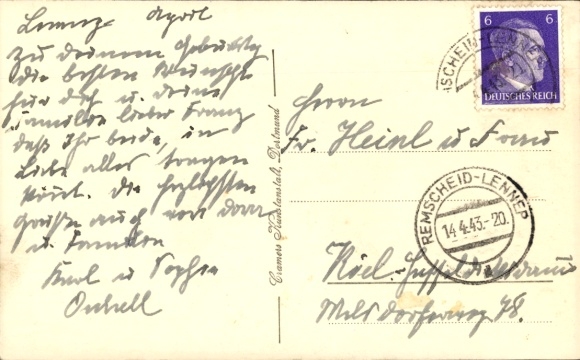 Lennep April
Zu deinem Geburtstag
die besten Wünsche
für dich u. deine
Familie lieber Franz
daß Ihr beide, in
Liebe alles tragen
könnt. Die herzlichsten
Grüße auch von Dora
u. Familie
Karl u Sophie
Cramers Kunstanstalt, Dortmund
6 6
DEUTSCHES REICH
REMSCHEID-LENNEP
Herrn
Fr. Heinl u Frau
REMSCHEID-LENNEP
14.4.43.-20.
Kiel-
78.